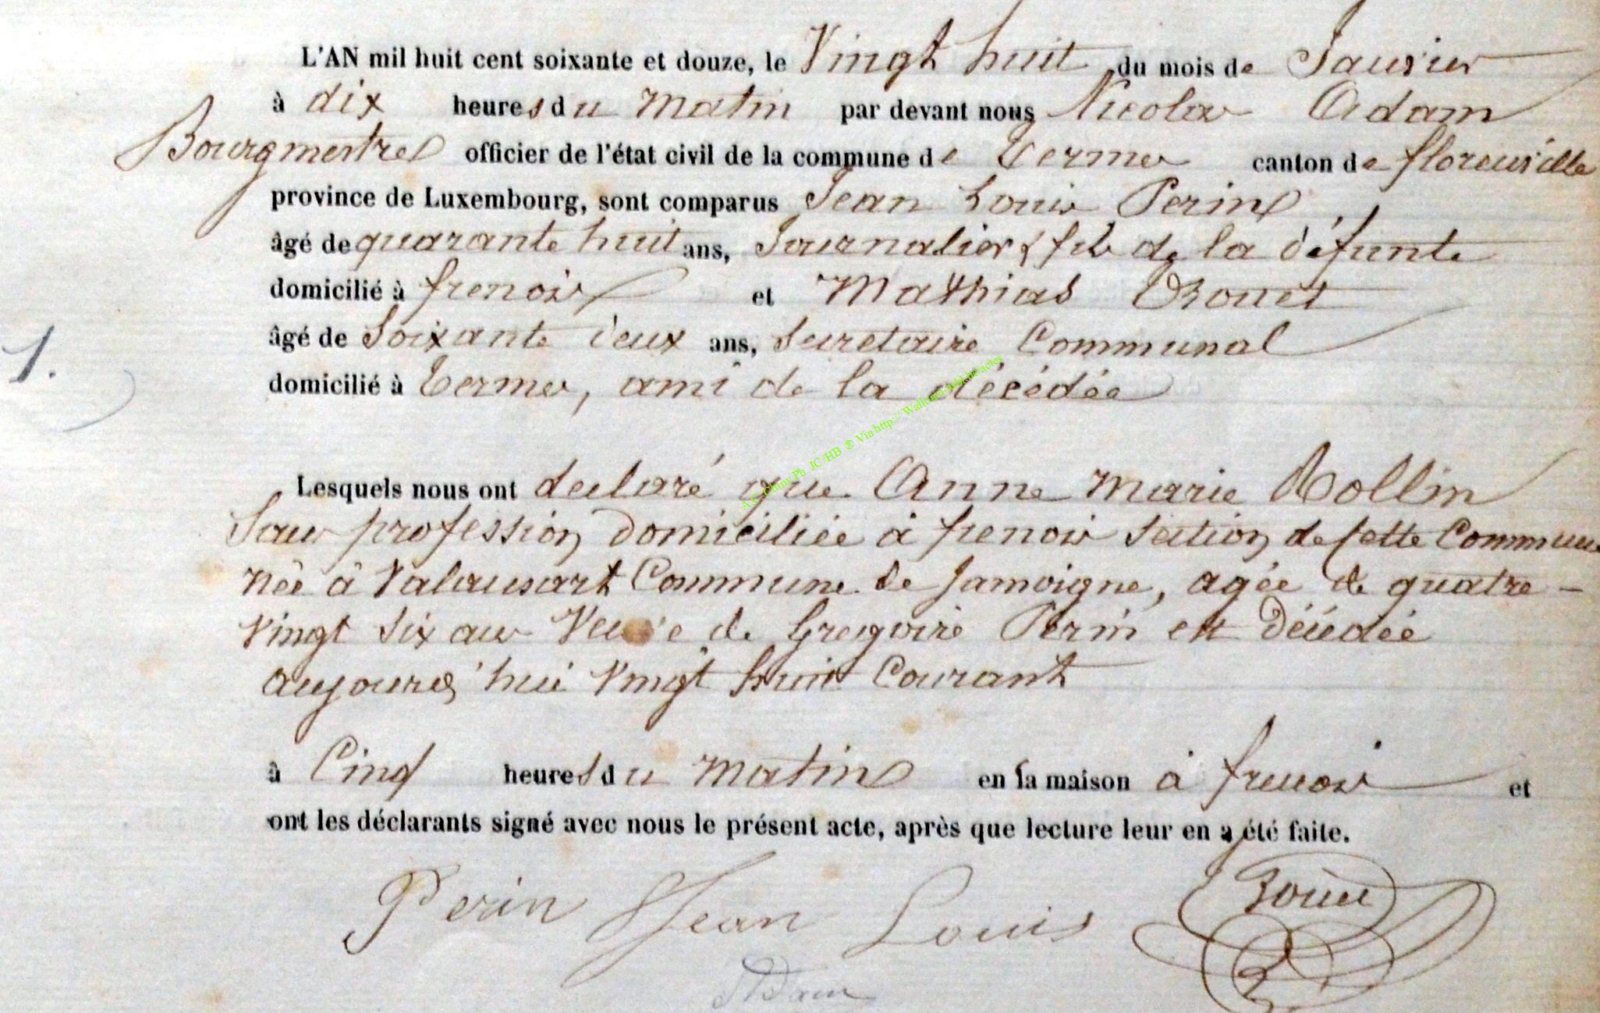 L'AN mil huit cent soixante et douze, le Vingt huit du mois de Janvier
à dix heures du matin par devant nous Nicolas Adam
Bourgmestre officier de l'état civil de la commune de Termes canton de florenville
province de Luxembourg, sont comparus Jean Louis Perin
âgé de quarante huit ans, Journalier, fils de la défunte
domicilié à frenois et Mathias Bouet
âgé de Soixante deux ans, Secretaire Communal
domicilié à Termes, ami de la décédée
1.
Lesquels nous ont declaré que Anne Marie Rollin
Sans profession, domiciliée à frenois section de cette Commune
née à Valansart Commune de Jamoigne, agée de quatre -
Vingt six ans Veuve de Gregoire Perin est Décédée
aujourd'hui Vingt huit Courant
à Cinq heures du matin en sa maison à frenois et
ont les déclarants signé avec nous le présent acte, après que lecture leur en a été faite.
Perin Jean Louis
Adam